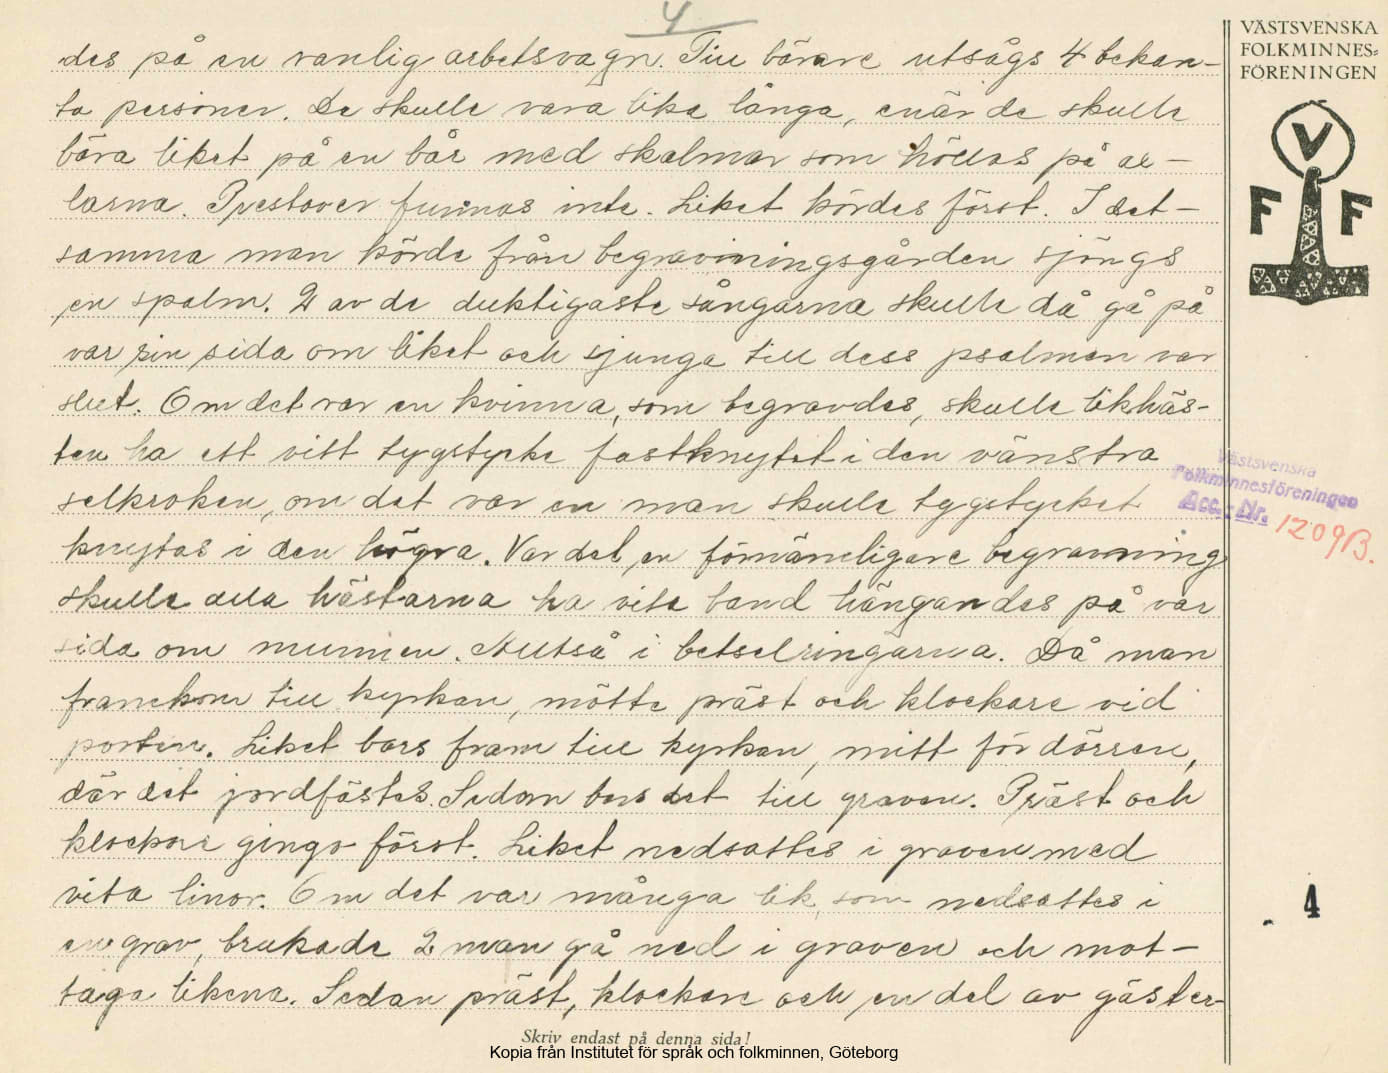 4
des på en vanlig arbetsvagn. Till bärare utsågs 4 bekan-
ta personer. De skulle vara lika långa, enär de skulle
bära liket på en bår med skalmar som höllos på ax-
larna. Prestaver funnos inte. Liket kördes först. I det-
samma man körde från begravningsgården sjöngs
en spalm. 2 av de duktigaste sångarna skulle då gå på
var sin sida om liket och sjunga till dess psalmen var
slut. Om det var en kvinna, som begravdes, skulle likhäs-
ten ha ett vitt tygstycke fastknytet i den vänstra
selkroken, om det var en man skulle tygstycket
knytas i den högra. Var det en förnämligare begravning
skulle alla hästarna ha vita band hängandes på var
sida om munnen. Alltså i betselringarna. Då man
framkom till kyrkan, mötte präst och klockare vid
porten. Liket bars fram till kyrkan, mitt för dörren,
där det jordfästes. Sedan bars det till graven. Präst och
klockare gingo först. Liket nedsattes i graven med
vita linor. Om det var många lik, som nedsattes i
en grav, brukade 2 man gå ned i graven och mot-
taga likena. Sedan präst, klockare och en del av gäster-
Skriv endast på denna sida!
Kopia från Institutet för språk och folkminnen, Göteborg
VÄSTSVENSKA
FOLKMINNES-
FÖRENINGEN
V
F F
Västsvenska
Folkminnesföreningen
Acc.-Nr. 1209B.
4